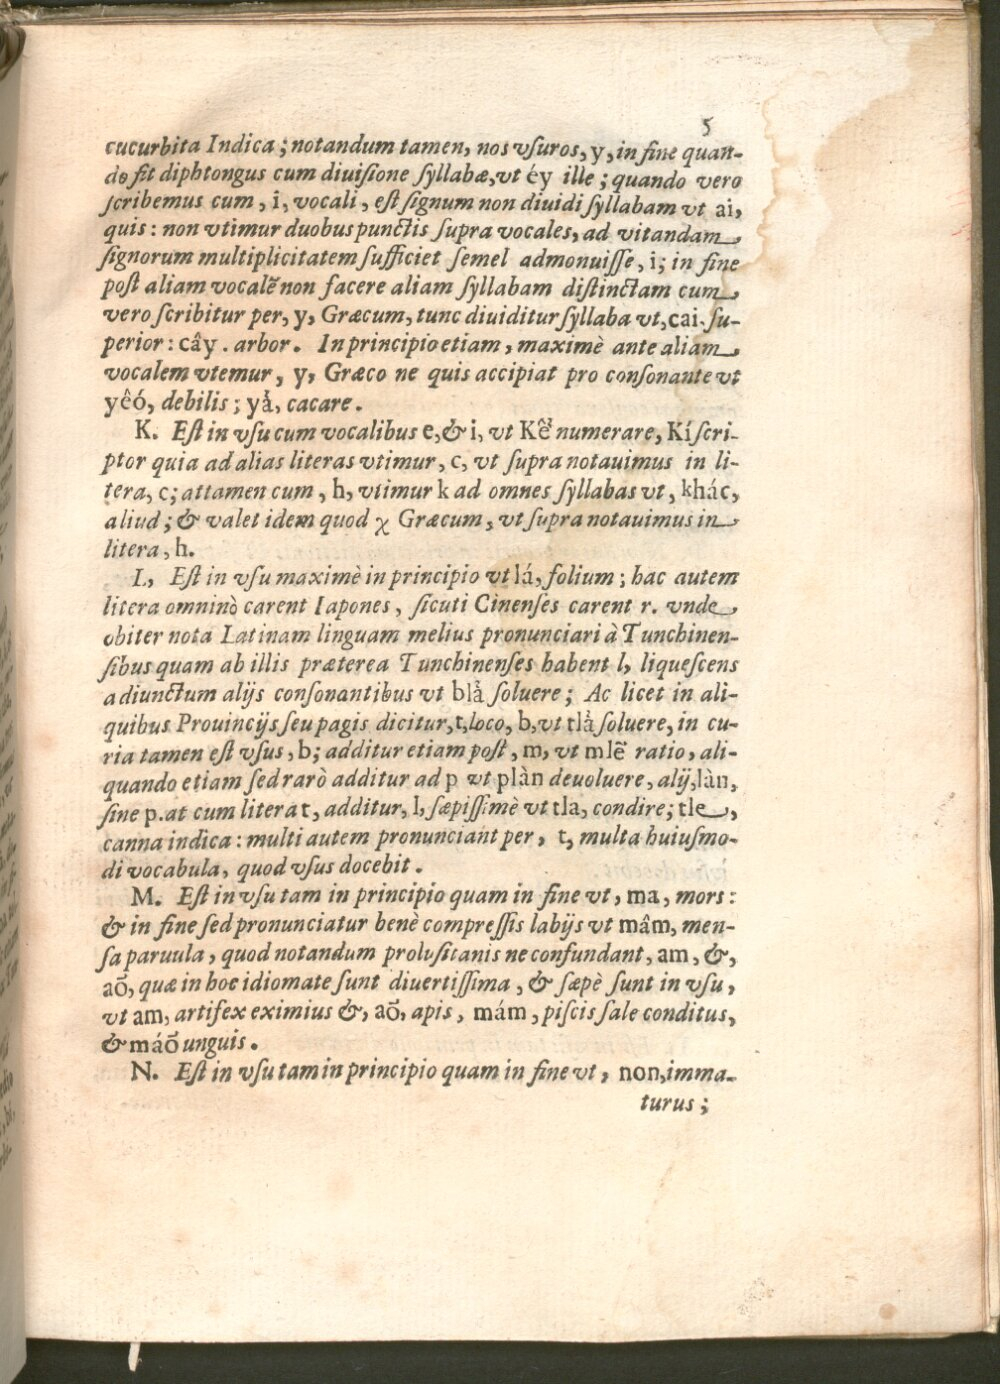 5
cucurbita Indica; notandum tamen, nos vſuros, y, in fine quan-
do fit diphtongus cum diuiſione ſyllabæ, vt éy ille; quando vero
ſcribemus cum, i, vocali, eſt ſignum non diuidi ſyllabam vt ai,
quis: non vtimur duobus punctis ſupra vocales, ad vitandam
ſignorum multiplicitatem ſufficiet ſemel admonuiſſe, i; in fine
poſt aliam vocalẽ non facere aliam ſyllabam diſtinctam cum
vero ſcribitur per, y, Græcum, tunc diuiditur ſyllaba vt, cai. ſu-
perior: cây. arbor. In principio etiam, maximè ante aliam
vocalem vtemur, y, Græco ne quis accipiat pro conſonante vt
yêó, debilis; yả, cacare.
K. Eſt in vſu cum vocalibus e, & i, vt Kể numerare, Kí ſcri-
ptor quia ad alias literas vtimur, c, vt ſupra notauimus in li-
tera, c; attamen cum, h, vtimur k ad omnes ſyllabas vt, khác,
aliud; & valet idem quod χ Græcum, vt ſupra notauimus in
litera, h.
L, Eſt in vſu maximè in principio vt lá, folium; hac autem
litera omninò carent Iapones, ſicuti Cinenſes carent r. vnde
obiter nota Latinam linguam melius pronunciari à Tunchinen-
ſibus quam ab illis præterea Tunchinenſes habent l, liqueſcens
adiunctum alijs conſonantibus vt blả ſoluere; Ac licet in ali-
quibus Prouincijs ſeu pagis dicitur, t, loco, b, vt tlả ſoluere, in cu-
ria tamen eſt vſus, b; additur etiam poſt, m, vt mlẽ ratio, ali-
quando etiam ſed rarò additur ad p vt plàn deuoluere, alij, làn,
ſine p. at cum litera t, additur, l, ſæpiſſimè vt tla, condire; tle,
canna indica: multi autem pronunciant per, t, multa huiuſmo-
di vocabula, quod vſus docebit.
M. Eſt in vſu tam in principio quam in fine vt, ma, mors:
& in fine ſed pronunciatur benè compreſſis labijs vt mâm, men-
ſa paruula, quod notandum pro luſitanis ne confundant, am, &,
ao᷄, quæ in hoc idiomate ſunt diuertiſſima, & ſæpè ſunt in vſu,
vt am, artifex eximius &, ao᷄, apis, mám, piſcis ſale conditus,
& máo᷄ unguis.
N. Eſt in vſu tam in principio quam in fine vt, non, imma-
turus;